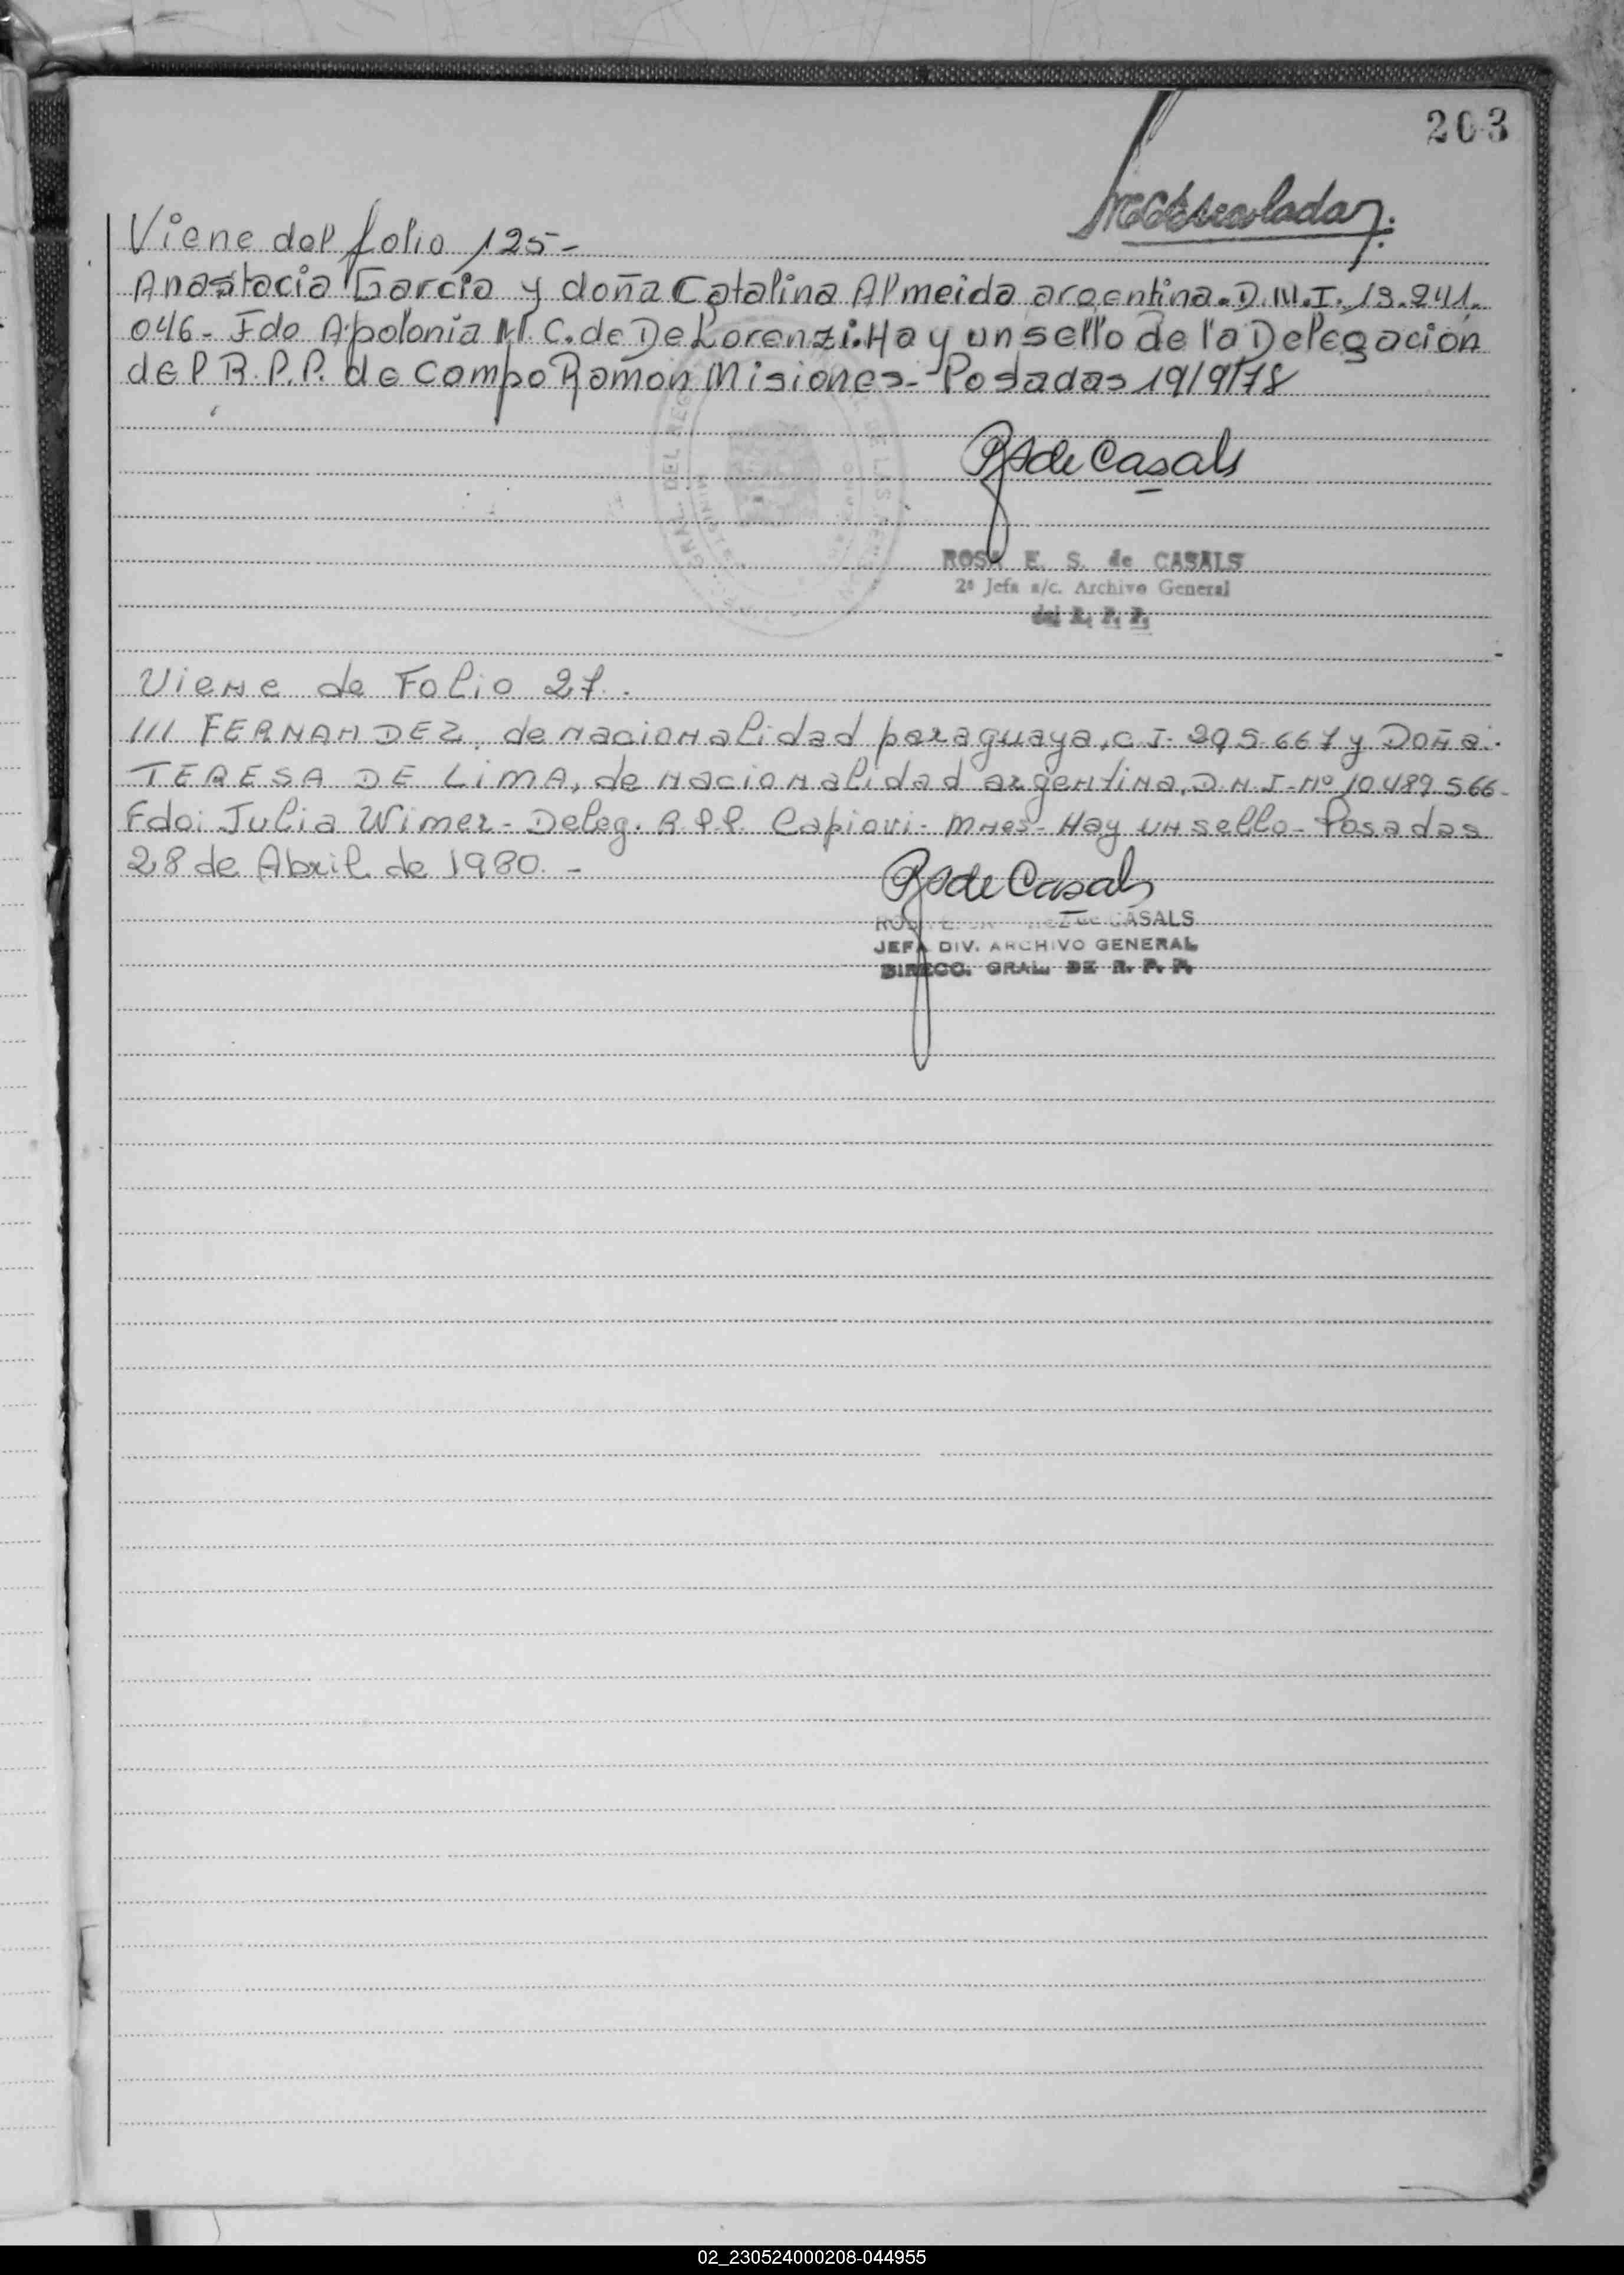 203
Viene del folio 125-
Anastacia Garcia y doña Catalina Almeida argentina. D.N.I. 13.241.
046- Fdo Apolonia M. C. de De Lorenzi. Hay un sello de la Delegación
del R.P.P. de Campo Ramon Misiones- Posadas 19/9/78
RS de Casals
ROSA E. S. de CASALS
2ª Jefa a/c. Archivo General
del R. P. P.
Viene de Folio 27.
/// FERNANDEZ, de nacionalidad paraguaya, C I. 295 667 y Doña.
TERESA DE LIMA, de nacionalidad argentina, D.N.I-Nº 10 487 566-
Fdo: Julia Wimer- Deleg. R.P.P. Capiovi- Mnes- Hay un sello- Posadas
28 de Abril de 1980. -
RS de Casals
de CASALS
JEFA DIV. ARCHIVO GENERAL
DIRECC. GRAL. DE R. P. P.
02_230524000208-044955